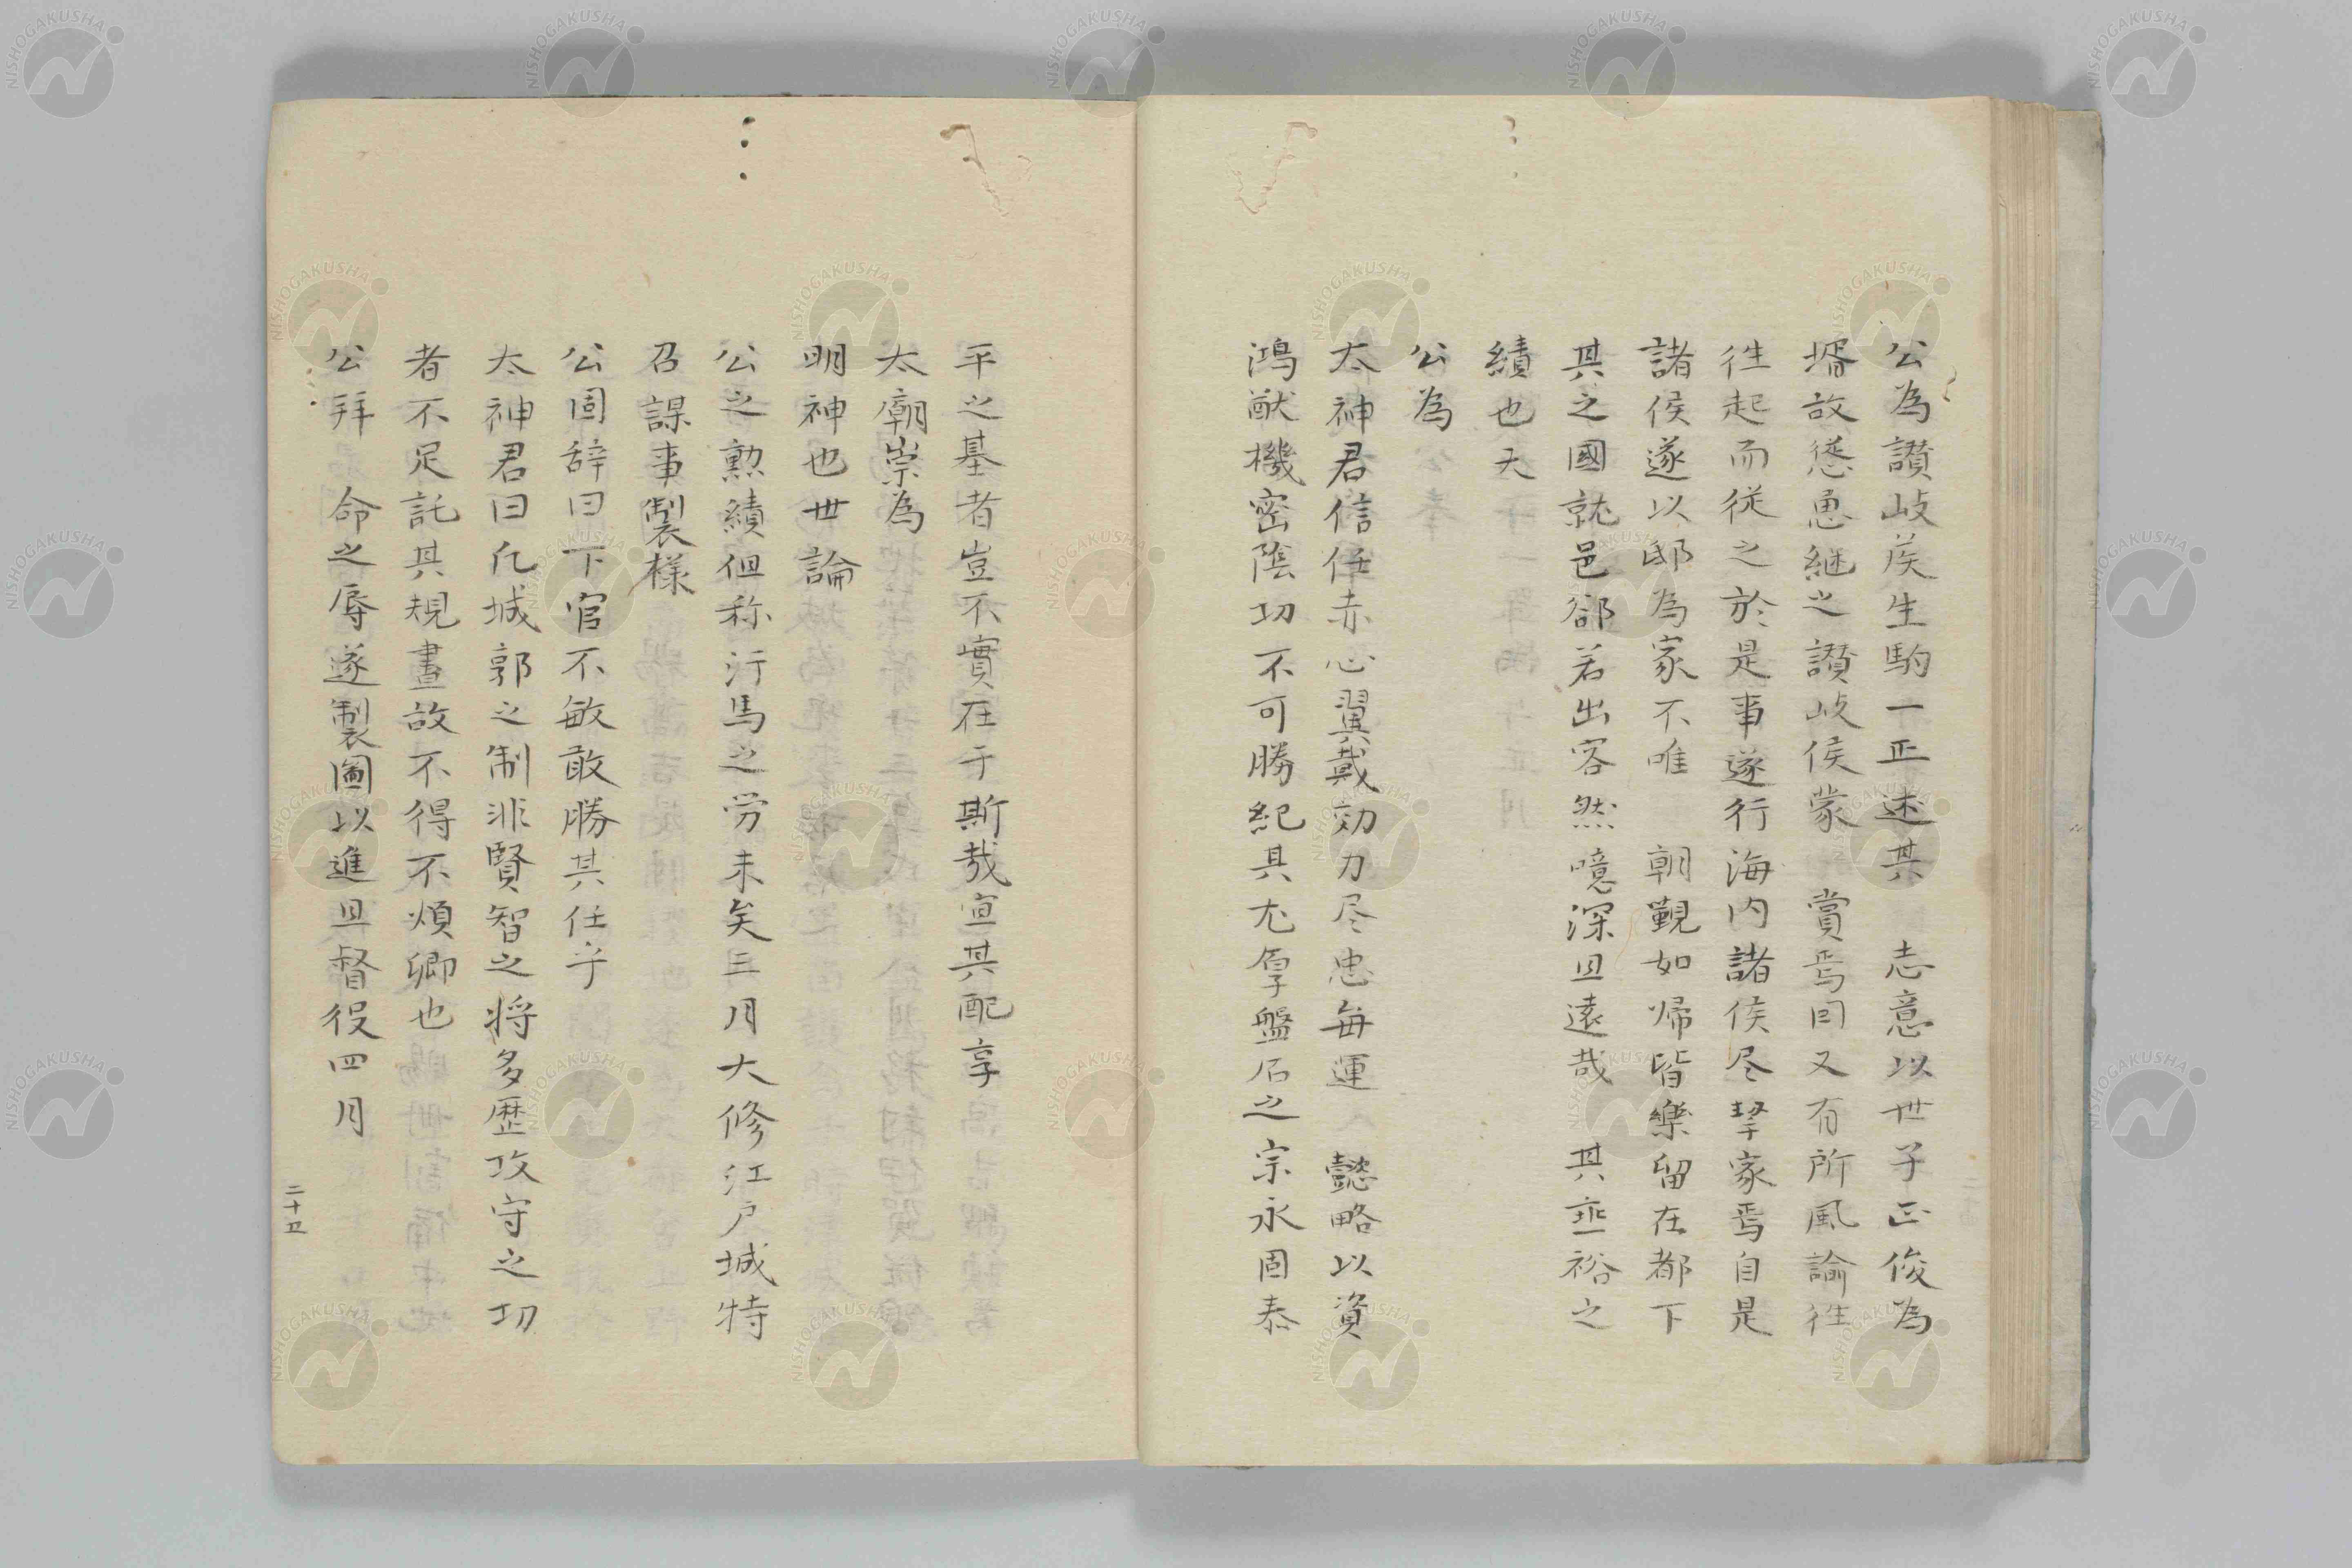 公為讃岐矦生駒一正述其　志意以世子正俊為
壻故慫慂継之讃岐侯蒙　賞焉囘又有所風諭徃
徃起而従之於是事遂行海内諸侯尽挈家焉自是
諸侯遂以邸為家不唯　朝覲如帰皆樂留在都下
其之國就邑郤若出客然噫深且遠哉　其垂裕之
績也夫
公為
太神君信任赤心翼戴効力尽忠毎運　懿略以資
鴻猷機密陰功不可勝紀具尤厚盤石之宗永固泰
平之基者豈不實在于斯哉宜其配享
太廟崇為
明神也世論
公之勲績但称汗馬之労未矣三月大修江户城特
召謀事製様
公固辞曰下官不敏敢勝其任乎
太神君曰凡城郭之制非賢智之将多歴攻守之功
者不足託其規畫故不得不煩卿也
公拜　命之辱遂製圖以進且督役四月
二十五
NISHOGAKUSHA